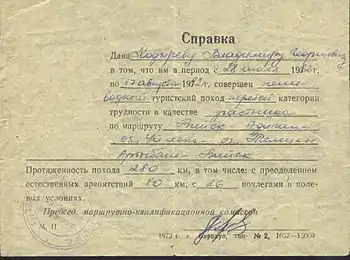 Справка
Дана Кодыреву Владимиру Георгиевичу
в том, что им в период с 28 июля 1982г.
по 17 августа 1982г. совершен пеше-
водный туристский поход третьей категории
трудности в качестве участника
по маршруту Бийск
оз. оз. Телецкое
Артыбаш – Бийск
Протяженность похода 280 км, в том числе: с преодолением
естественных препятствий 80 км, с 16 ночлегами в поле-
вых условиях.
Председ. маршрутно-квалификационной комиссии
М. П.
1973 г. г. Барнаул, тип № 2, 1657—15000